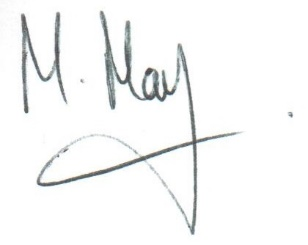 M. May